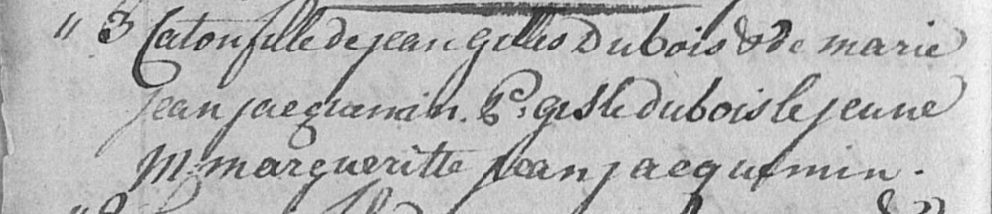 " 3 Caton fille de jean gilles Dubois & de marie
jean jacquemin. P: gisle dubois le jeune
M: margueritte jean jacquemin.